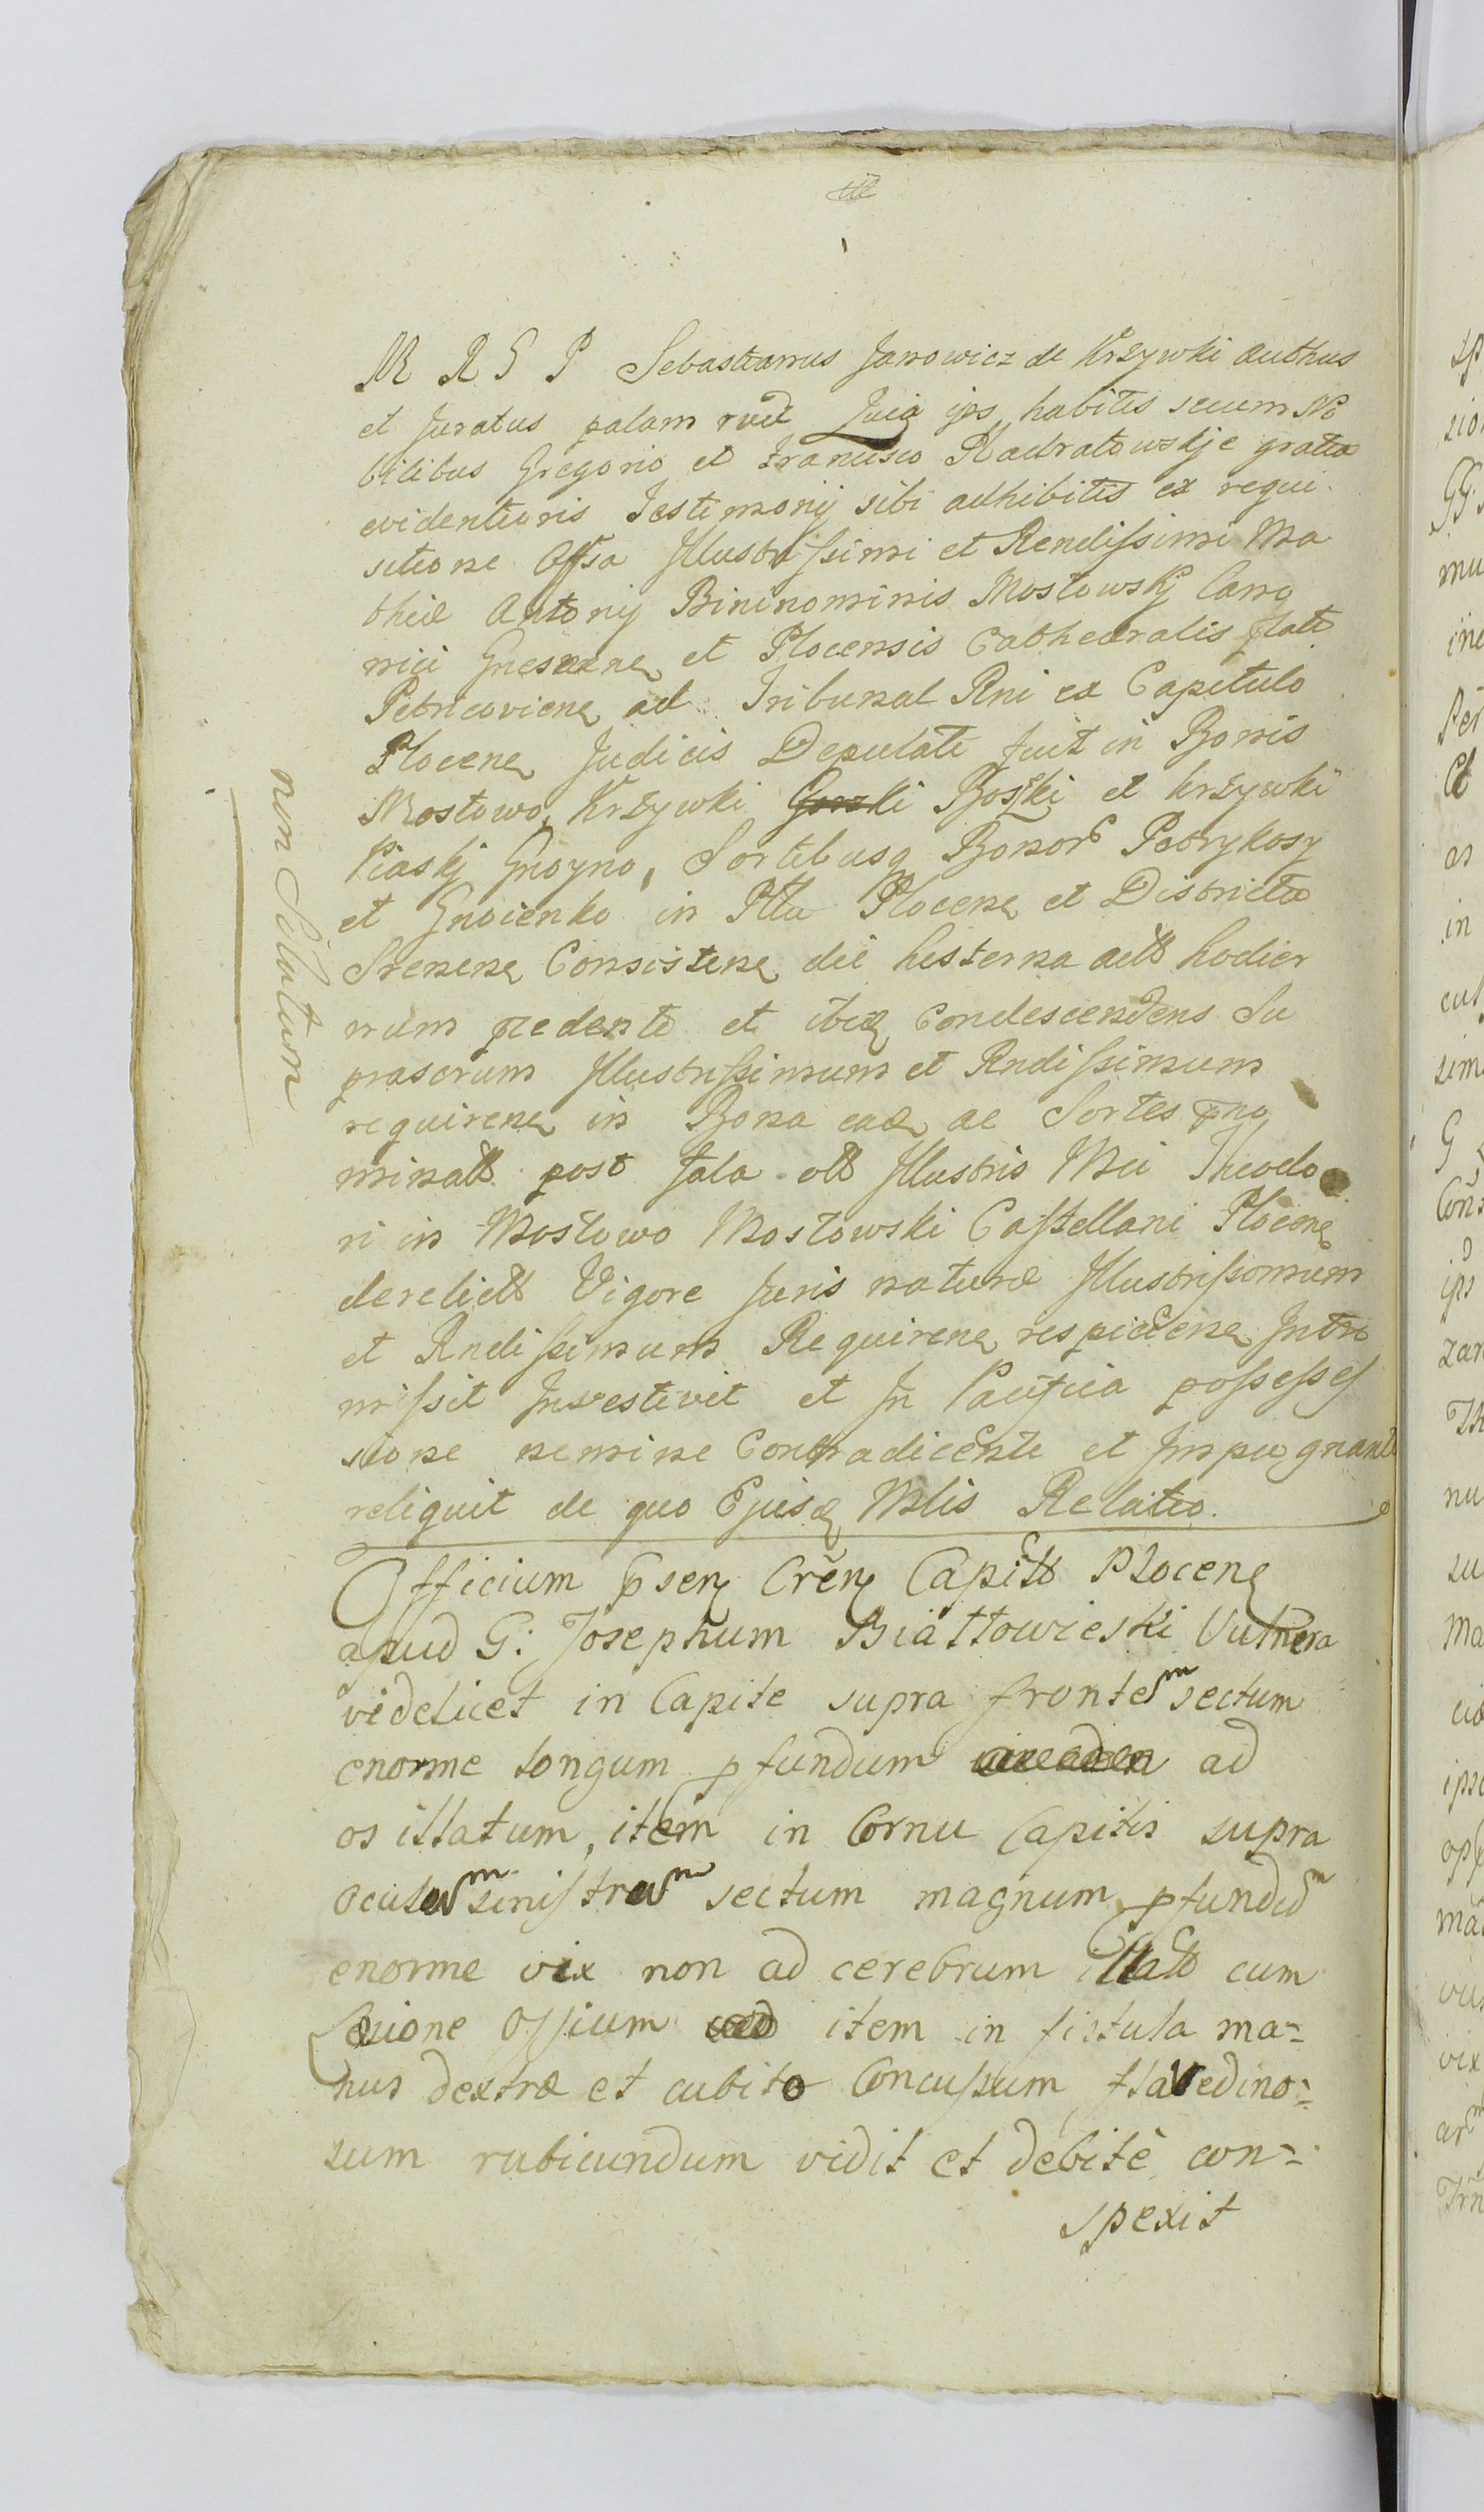 M R G P Sebastianus Janowicz de Krzywki authus
et Juratus palam Quia ips habitis secum No
bilibus Gregorio et Francisco gratia
evidentioris Testimonij sibi adhibitis ex requi
sitione Offsa Illustrissimi et Rendissimi Ma
thiæ Antonij Bininominis Mostowskj Cano
nici Gnesnene et Plocensis Cathedralis
Petricoviene ad Tribunal Rni ex Capitulo
Plocene Judicis Deputati fuit in Bonis
Mostowo, Krzywki Boski et Krzywki
Piaskj Gnoyno, Sortibusq Bonor Petrykosy
et Gnoienko in Pltu Plocene et Districtu
Srenene Consistene die hesterna hodier
num et ibiq Condescendens Su
prascrum Illustrissimum et Rndissimum
requirene in Bona eaq ac Sortes pno
minatt post fata ott Illustris Mci Theodo
ri in Mostowo Mostowski Castellani Plocene
derelictt Vigore Juris naturæ Illustrissimum
et Rndissimum Requirene respiciene Intro
missit Investivit et In Pacifica possesses
sione nemine Contradicente et Impugnante
reliquit de quo Ejusq Mlis Relatio.
non Solutum
Officium psen Crẽn Capitt Plocene
apud G: Josephum Białłowieski Vulnera
videlicet in Capite supra frontem sectum
enorme longum pfundum ad
os illatum, item in Cornu Capitis supra
oculum sinistrum sectum magnum pfundum
enorme vix non ad cerebrum illatt cum
Lesione Ossium item in fistula ma=
nus dextræ et cubito Concussum flavedino=
sum rubicundum vidit et debitè con=
spexit